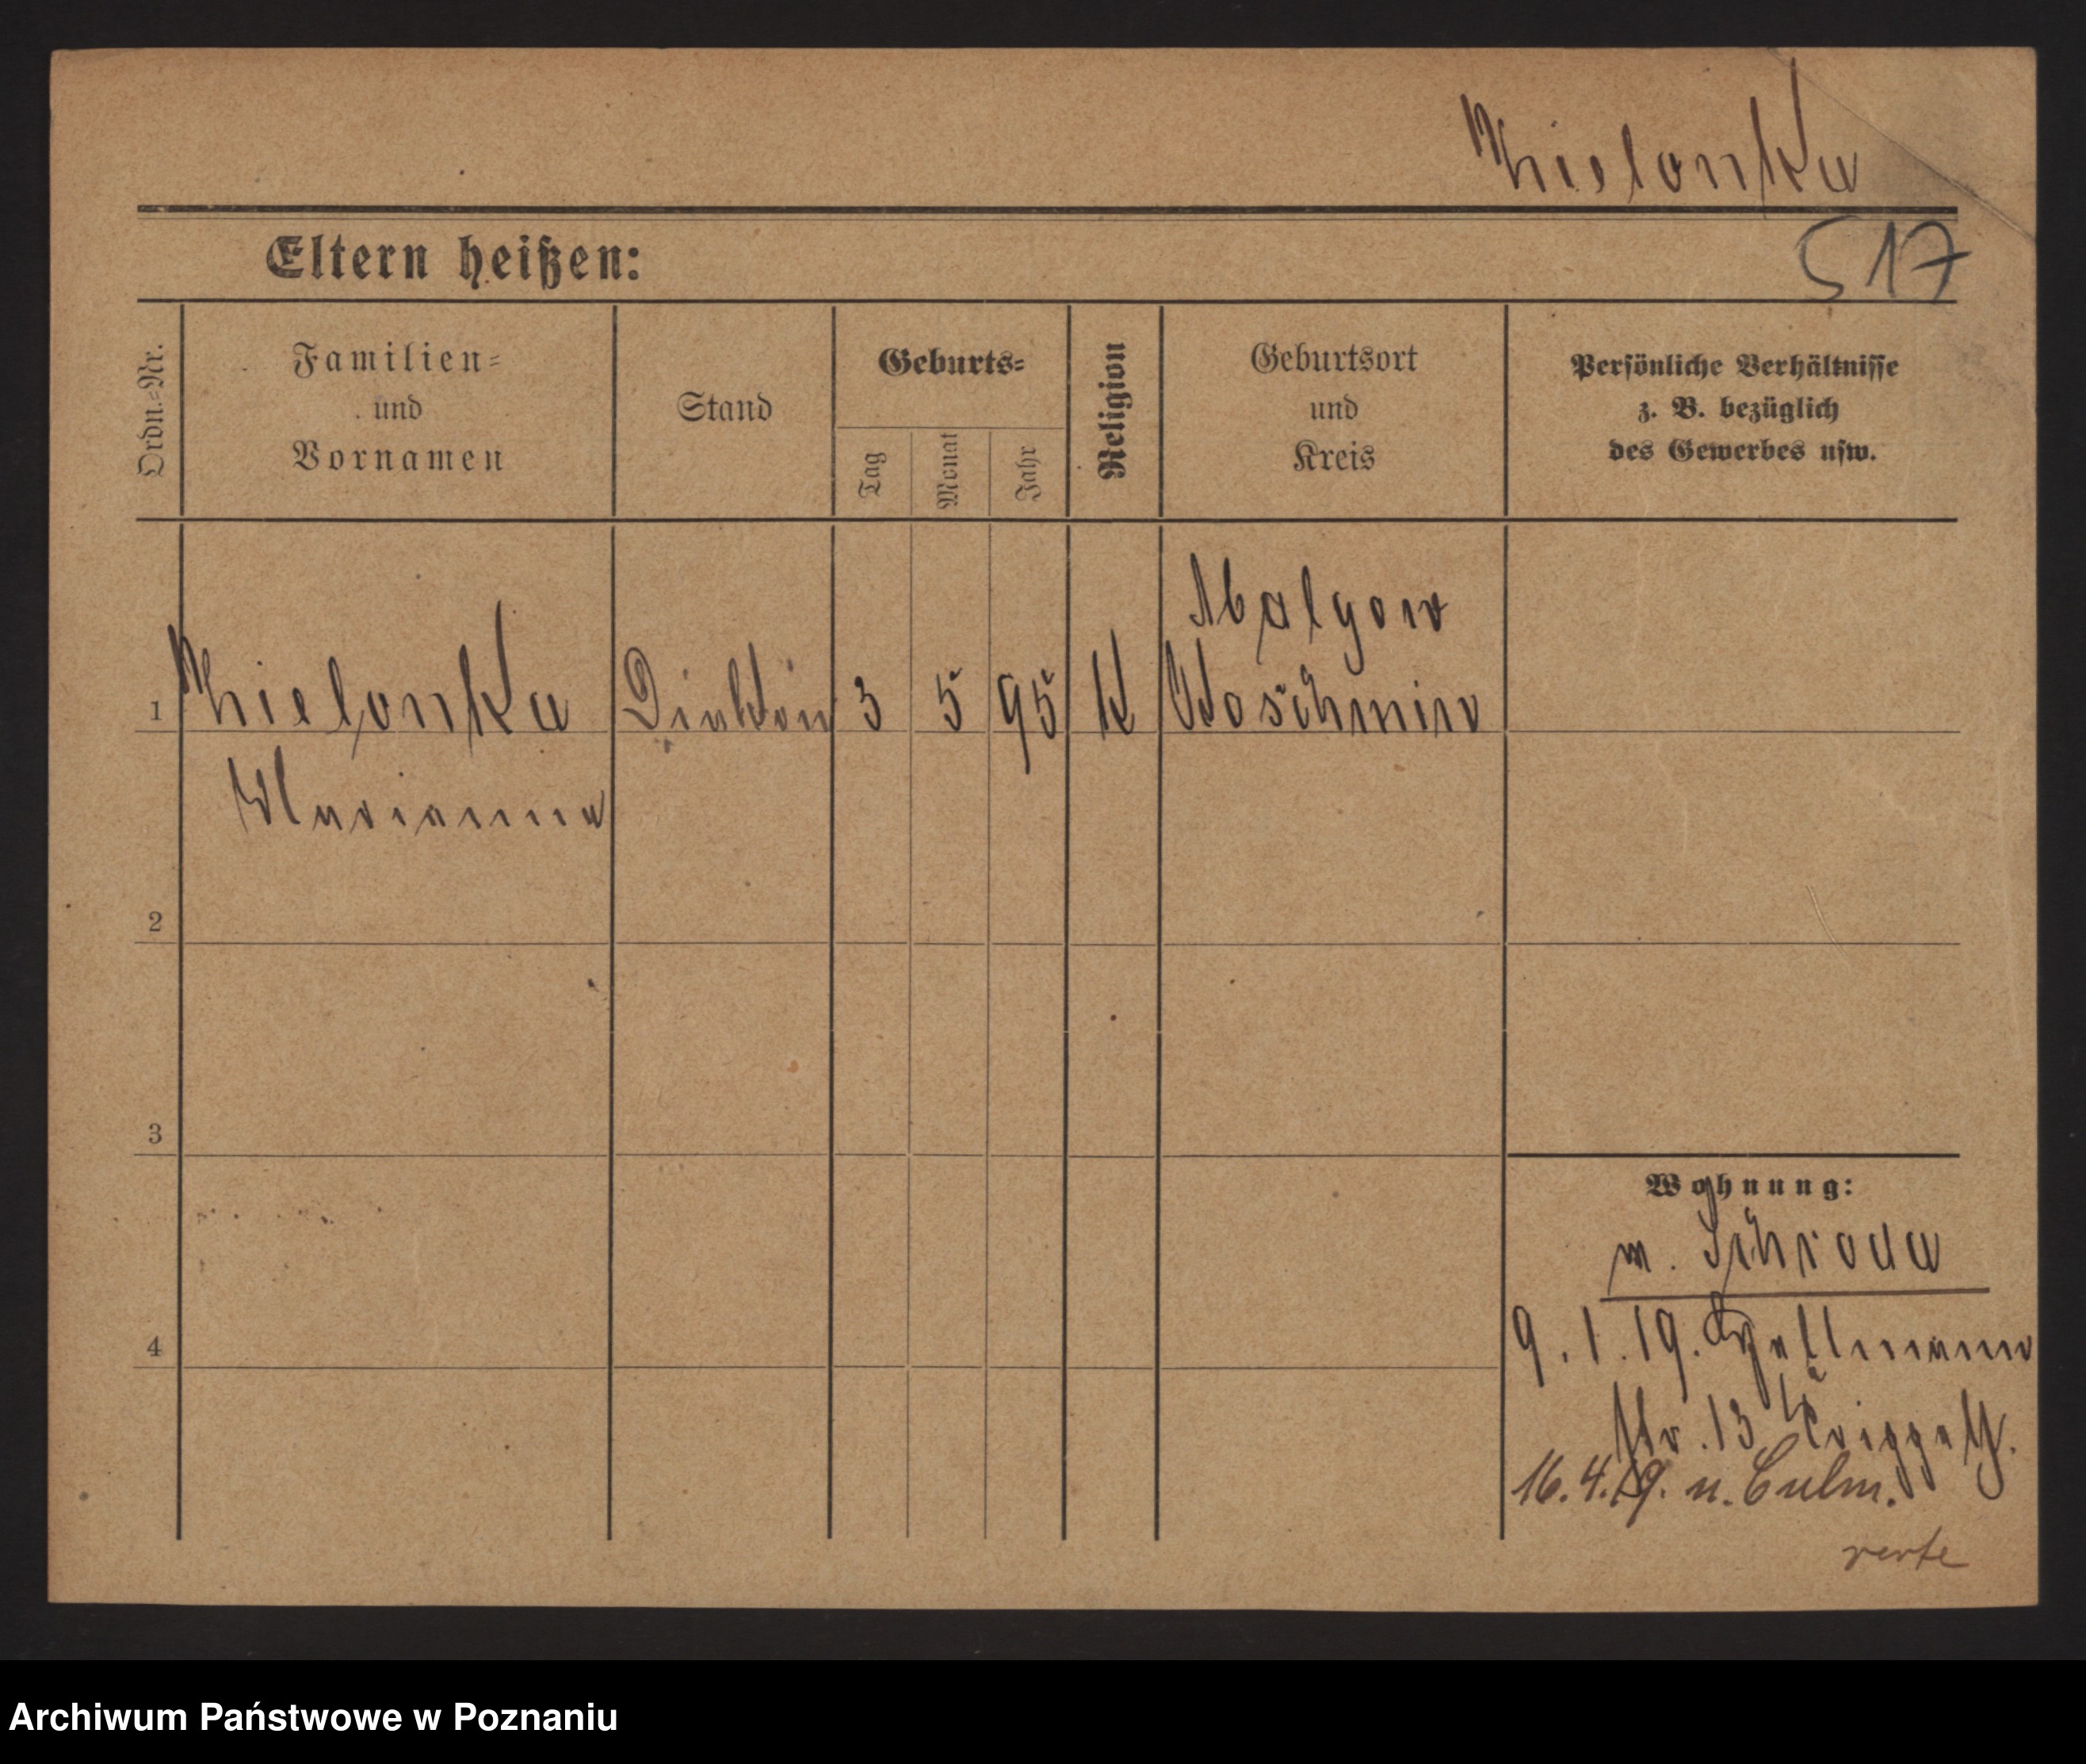 Zielonka
517
Eltern heißen:
Ordn.-Nr.
Familien-
und
Vornamen
Stand
Geburts-
Tag
Monat
Jahr
Religion
Geburtsort
und
Kreis
Persönliche Verhältnisse
z. B. bezüglich
des Gewerbes usw.
Malgow
1 Zielonka 3 5 95 K Koschmin
Marianna
2
3
Wohnung:
Schroda
9.1.19.
4
Str. 13
16.4.19. n. Culm.
verte
Archiwum Państwowe w Poznaniu